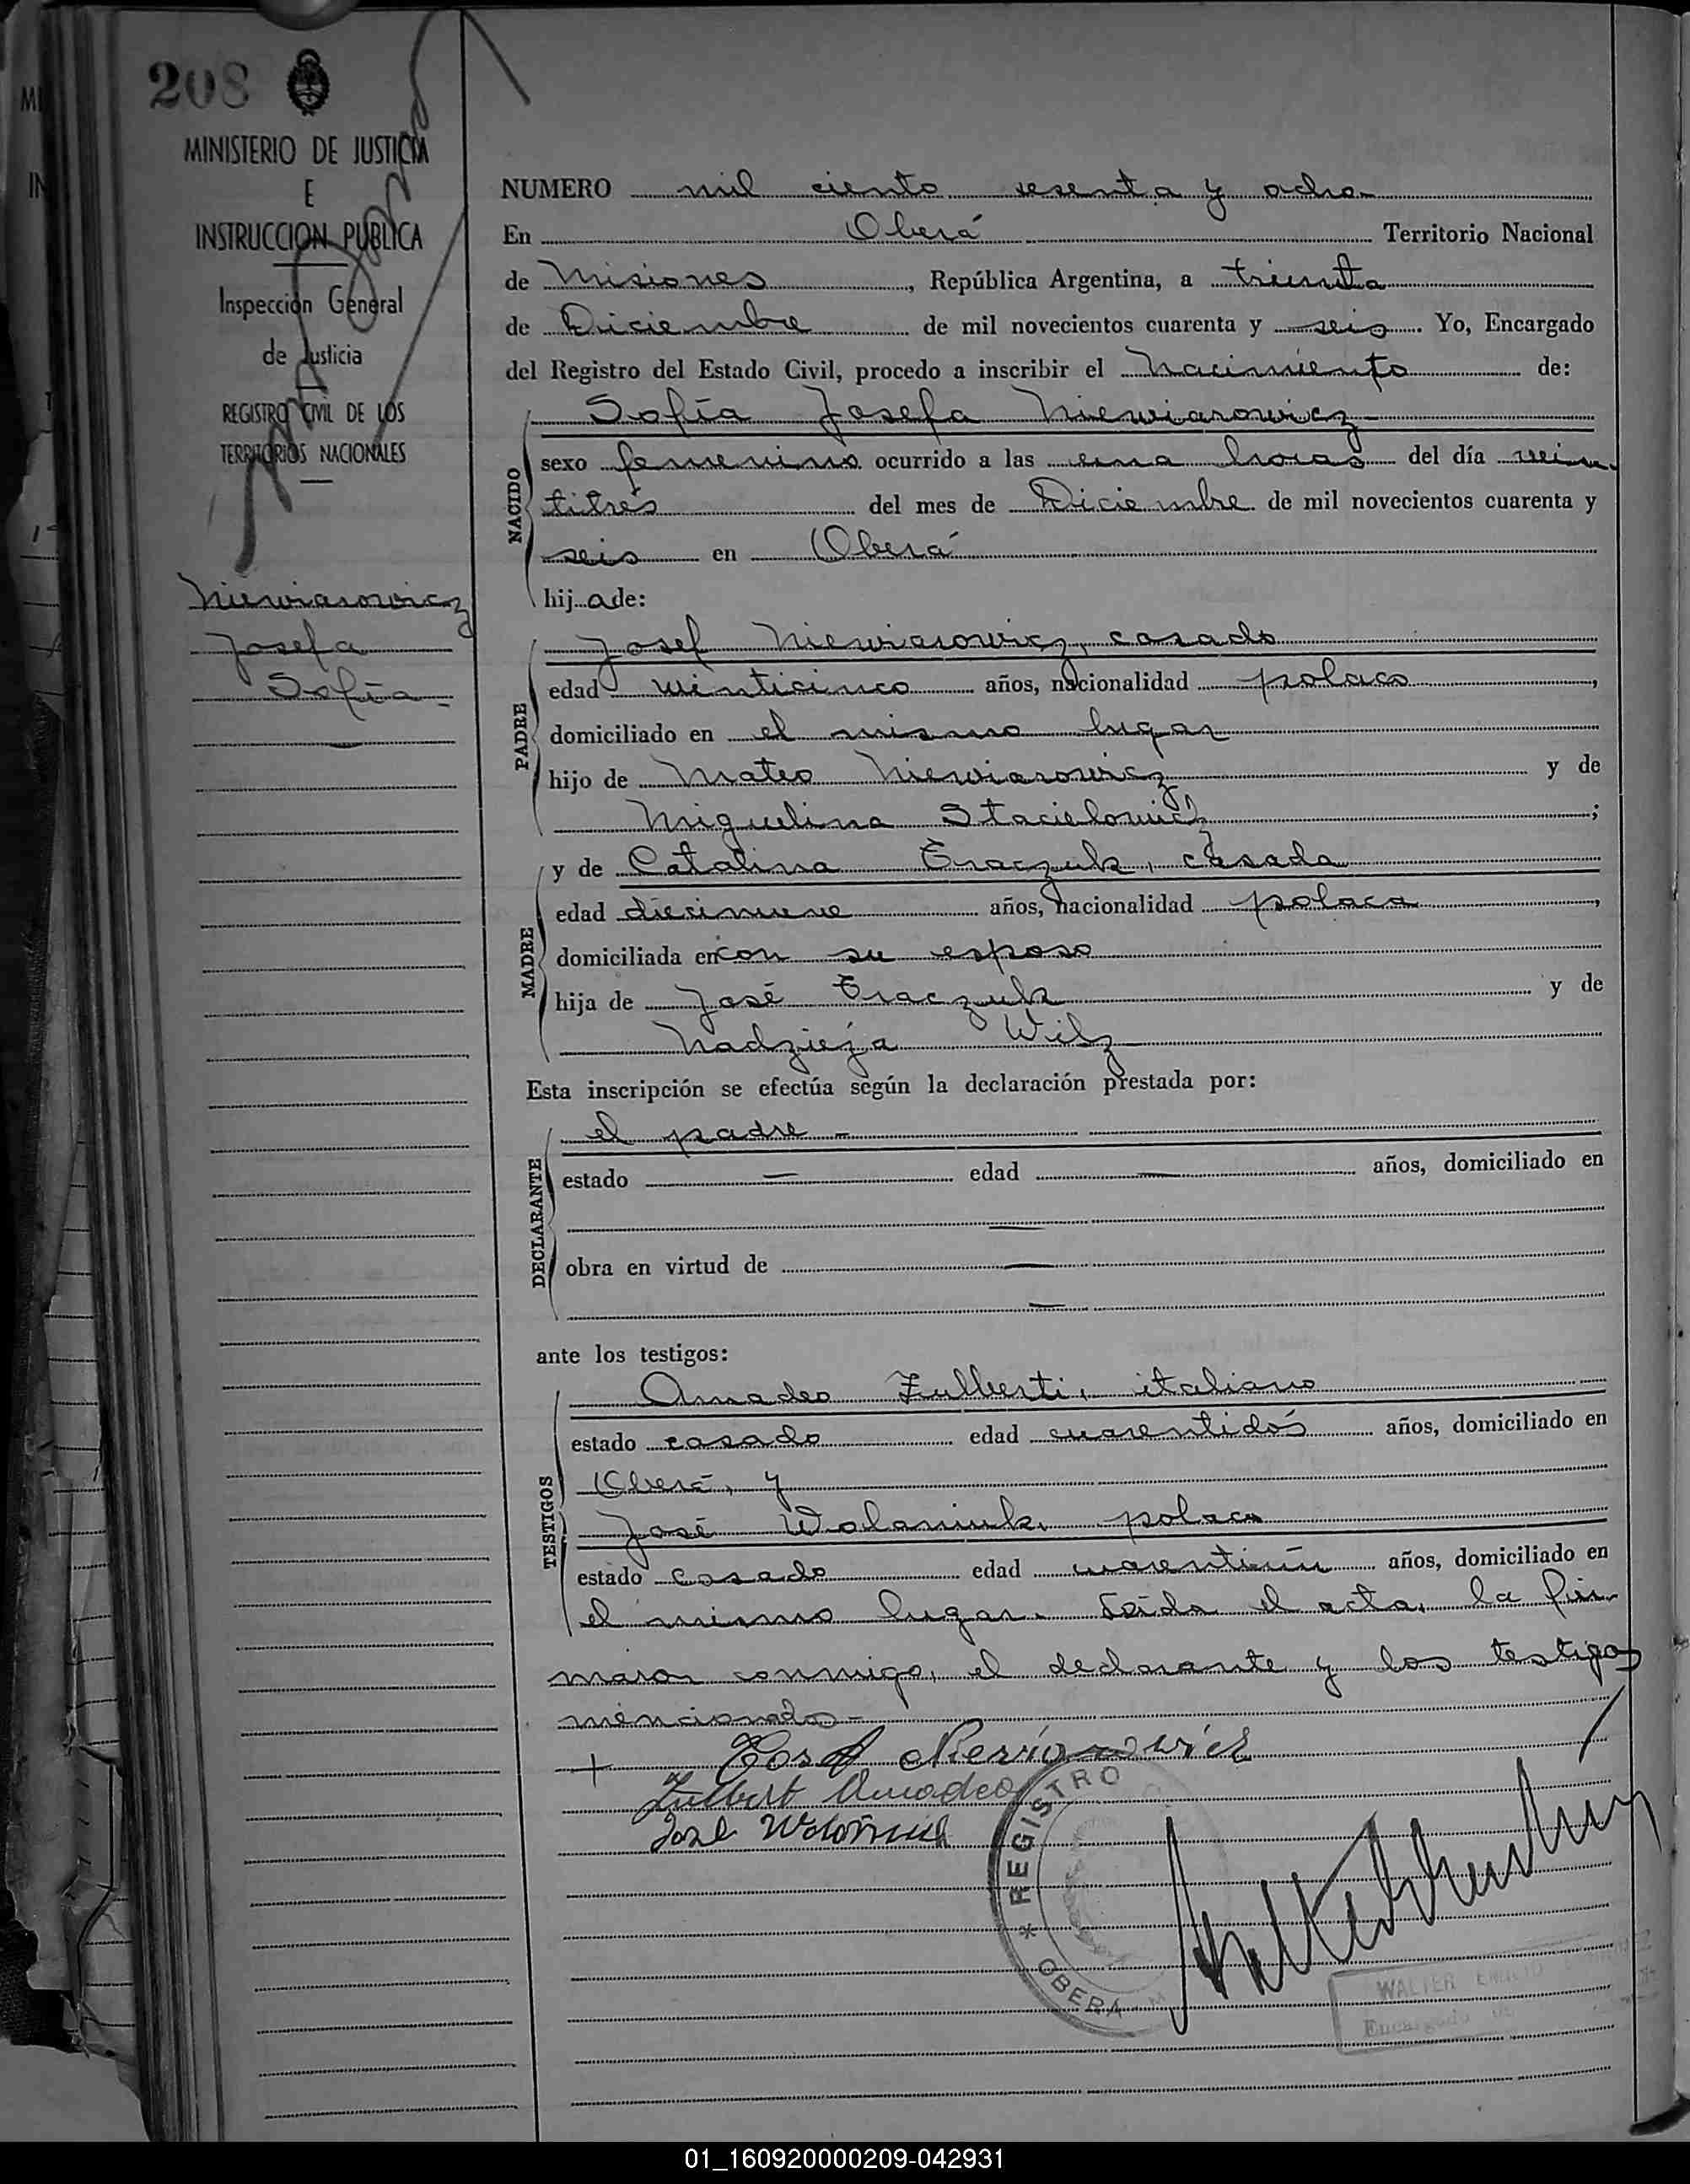 208
MINISTERIO DE JUSTICIA
E
INSTRUCCION PUBLICA
Inspección General
de Justicia
REGISTRO CIVIL DE LOS
TERRITORIOS NACIONALES
Niewiarowicz
Josefa
Sofía
NUMERO mil ciento sesenta y ocho
En Oberá Territorio Nacional
de Misiones, República Argentina, a treinta
de Diciembre de mil novecientos cuarenta y seis. Yo, Encargado
del Registro del Estado Civil, procedo a inscribir el Nacimiento de:
Sofía Josefa Niewiarowicz
NACIDO
sexo femenino ocurrido a las una horas del día vein
titrés del mes de Diciembre de mil novecientos cuarenta y
seis en Oberá
hij a de:
PADRE
Josef Niewiarowicz, casado
edad veinticinco años, nacionalidad polaco,
domiciliado en el mismo lugar
hijo de Mateo Niewiarowicz y de
Miguelina ;
MADRE
y de Catalina Traczuk, casada
edad diecinueve años, nacionalidad polaca,
domiciliada en con su esposo
hija de José Traczuk y de
Nadzieja Wilz
Esta inscripción se efectúa según la declaración prestada por:
DECLARANTE
el padre -
estado — edad — años, domiciliado en
—
obra en virtud de —
—
ante los testigos:
TESTIGOS
Amadeo Fulberti, italiano
estado casado edad cuarentidós años, domiciliado en
Oberá, y
José Wolaniuk, polaco
estado casado edad cuarentiún años, domiciliado en
el mismo lugar. Leída el acta, la fir
maron conmigo, el declarante y los testigos
mencionados-
REGISTRO
* OBERA
WALTER EMILIO
Encargado de
01_160920000209-042931